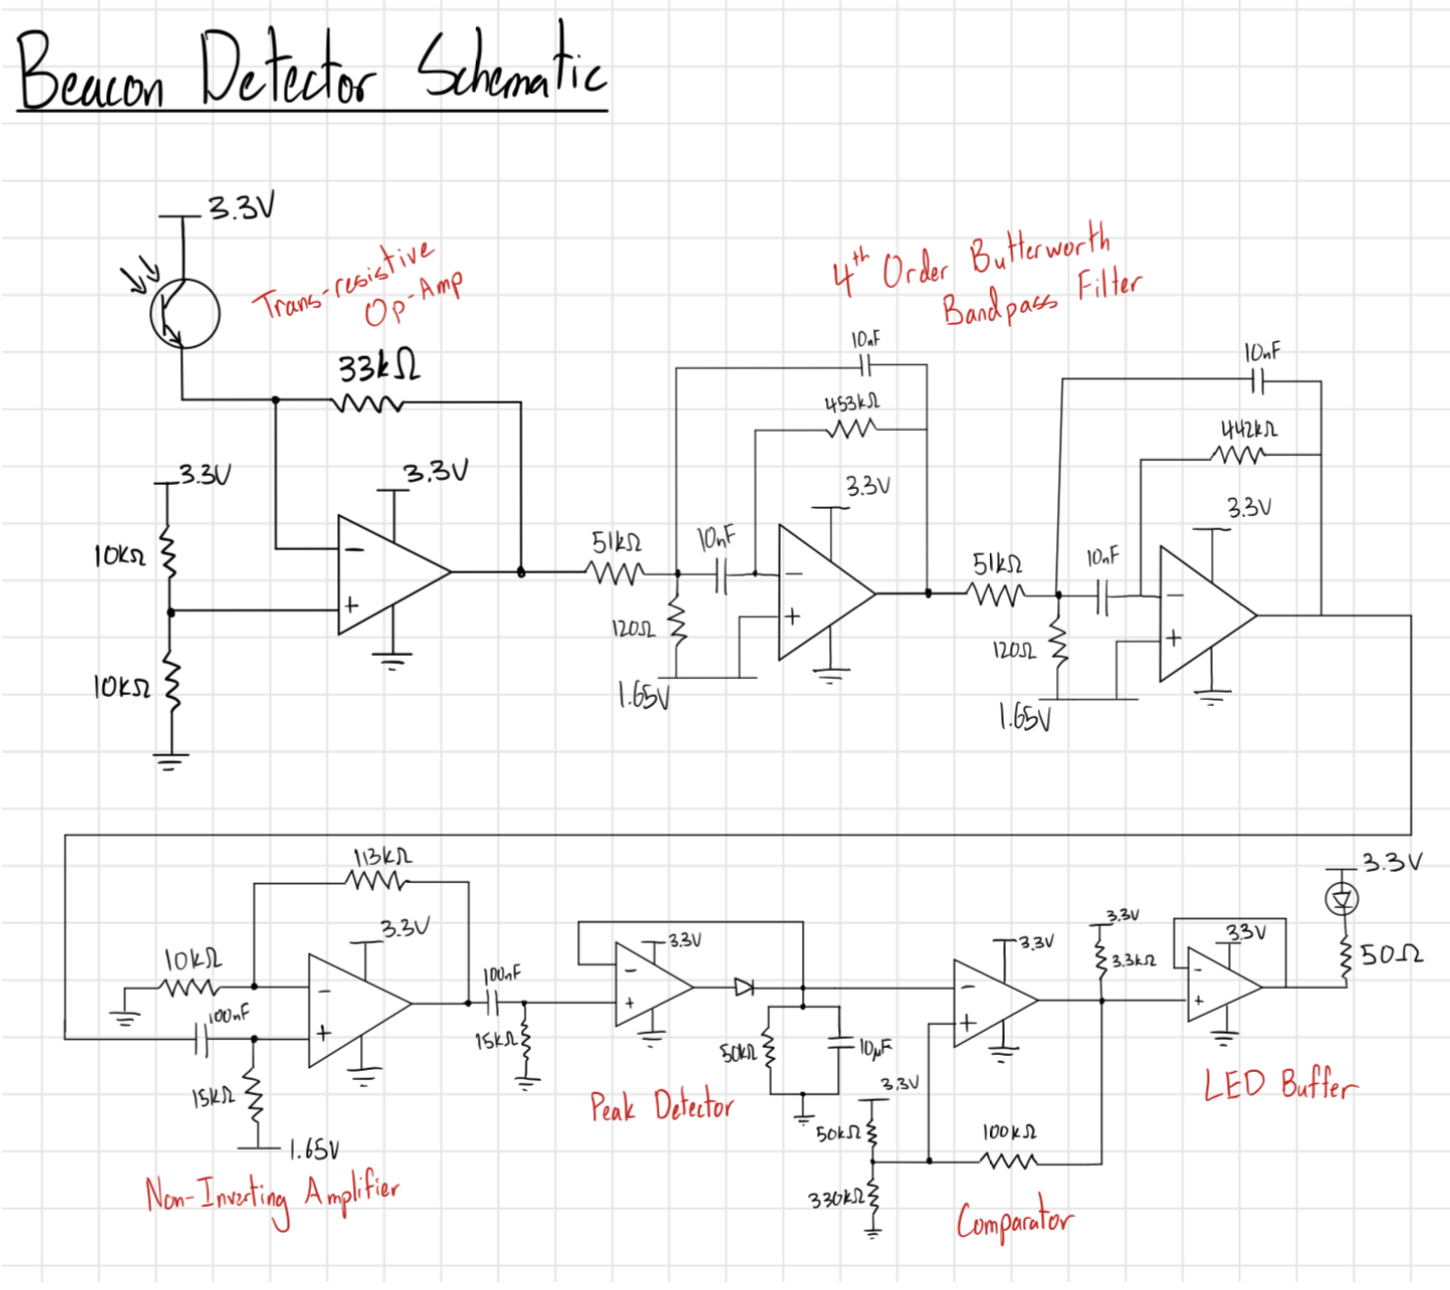 Beacon Detector Schematic
3.3V
Trans-resistive
Op-Amp
33kΩ
3.3V
3.3V
10kΩ
10kΩ
4th Order Butterworth
Bandpass Filter
10nF
453kΩ
3.3V
51kΩ
10nF
120Ω
1.65V
10nF
442kΩ
3.3V
51kΩ
10nF
120Ω
1.65V
113kΩ
3.3V
10kΩ
100nF
15kΩ
1.65V
Non-Inverting Amplifier
100nF
15kΩ
3.3V
50kΩ
10µF
Peak Detector
3.3V
3.3V
3.3kΩ
3.3V
50kΩ
330kΩ
100kΩ
Comparator
3.3V
3.3V
50Ω
LED Buffer